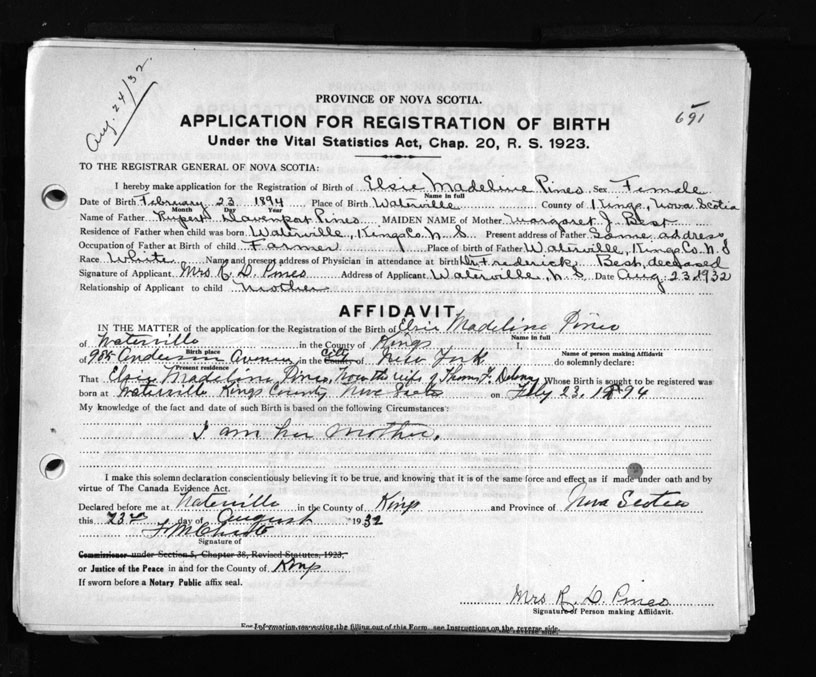 Aug. 24/32.
PROVINCE OF NOVA SCOTIA.
691
APPLICATION FOR REGISTRATION OF BIRTH
Under the Vital Statistics Act, Chap. 20, R. S. 1923.
TO THE REGISTRAR GENERAL OF NOVA SCOTIA:
I hereby make application for the Registration of Birth of Elsie Madeline Pineo Sex Female
Name in full
Date of Birth February 23 1894 Place of Birth Waterville County of Kings, Nova Scotia
Month Day Year
Name of Father Rupert Davenport Pineo MAIDEN NAME of Mother Margaret J. Best
Residence of Father when child was born Waterville, Kings Co. N. S Present address of Father Same address
Occupation of Father at Birth of child Farmer Place of birth of Father Waterville, Kings Co. N. S
Race White Name and present address of Physician in attendance at birth Dr. Frederick Best, deceased
Signature of Applicant Mrs R. D. Pineo Address of Applicant Waterville, N. S. Date Aug. 23, 1932
Relationship of Applicant to child Mother
AFFIDAVIT
IN THE MATTER of the application for the Registration of the Birth of Elsie Madeline Pineo
Name in full
of Waterville in the County of Kings I,
Birth place Name of person making Affidavit
of 985 Anderson Avenue in the County City of New York do solemnly declare:
Present residence
That Elsie Madeline Pineo, now the wife of Thomas F. Whose Birth is sought to be registered was
born at Waterville Kings County Nova Scotia on Feby 23, 1894
My knowledge of the fact and date of such Birth is based on the following Circumstances:
I am her mother.
I make this solemn declaration conscientiously believing it to be true, and knowing that it is of the same force and effect as if made under oath and by
virtue of The Canada Evidence Act.
Declared before me at Waterville in the County of Kings and Province of Nova Scotia
this 23rd day of August 1932
Signature of
Commissioner under Section 5, Chapter 38, Revised Statutes, 1923,
or Justice of the Peace in and for the County of Kings
If sworn before a Notary Public affix seal.
Mrs R. D. Pineo
Signature of Person making Affidavit.
For Information respecting the filling out of this Form, see Instructions on the reverse side.